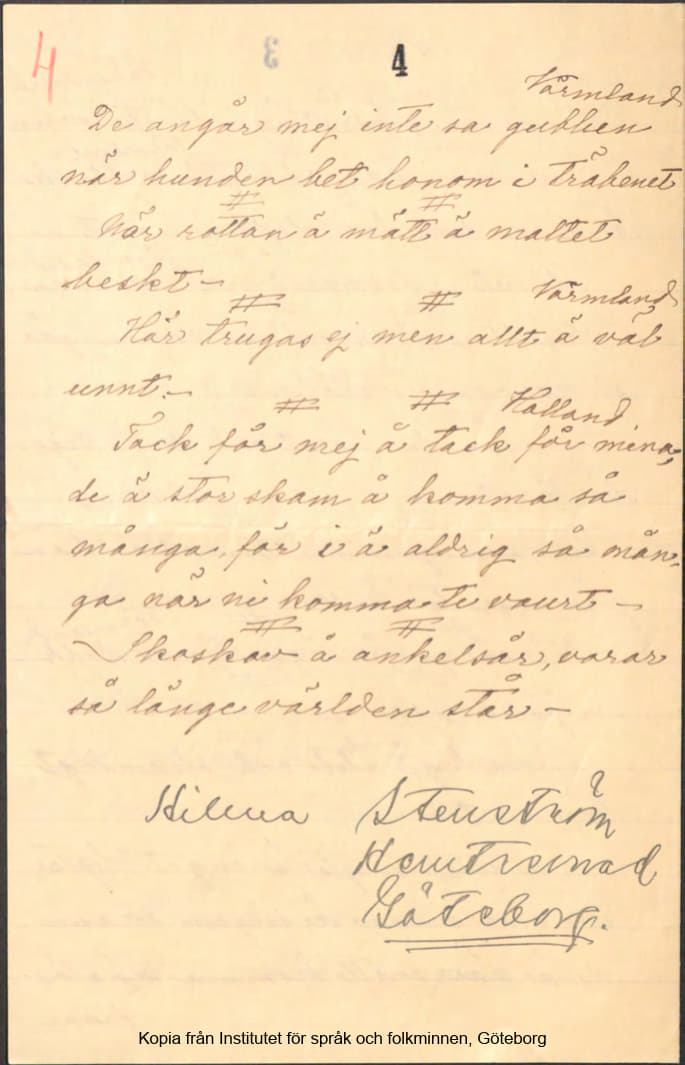 4 3 4
Värmland
De angår mej inte sa gubben
när hunden bet honom i träbenet
När rottan ä mätt ä maltet
beskt –
Värmland
Här trugas ej men allt ä väl
unnt. –
Halland
Tack för mej å tack för mina,
de ä stor skam å komma så
många, för i ä aldrig så mån-
ga när ni komma te vaurt –
Skoskav å ankelsår, varar
så länge världen står –
Hilma Stenström
Göteborg.
Kopia från Institutet för språk och folkminnen, Göteborg